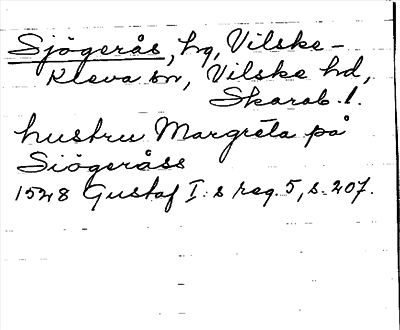 Sjögerås, hg, Vilske-
Kleva sn, Vilske hd,
Skarab. l.
hustru Margréta på
Siögeråss
1528 Gustaf I:s reg. 5, s. 207.